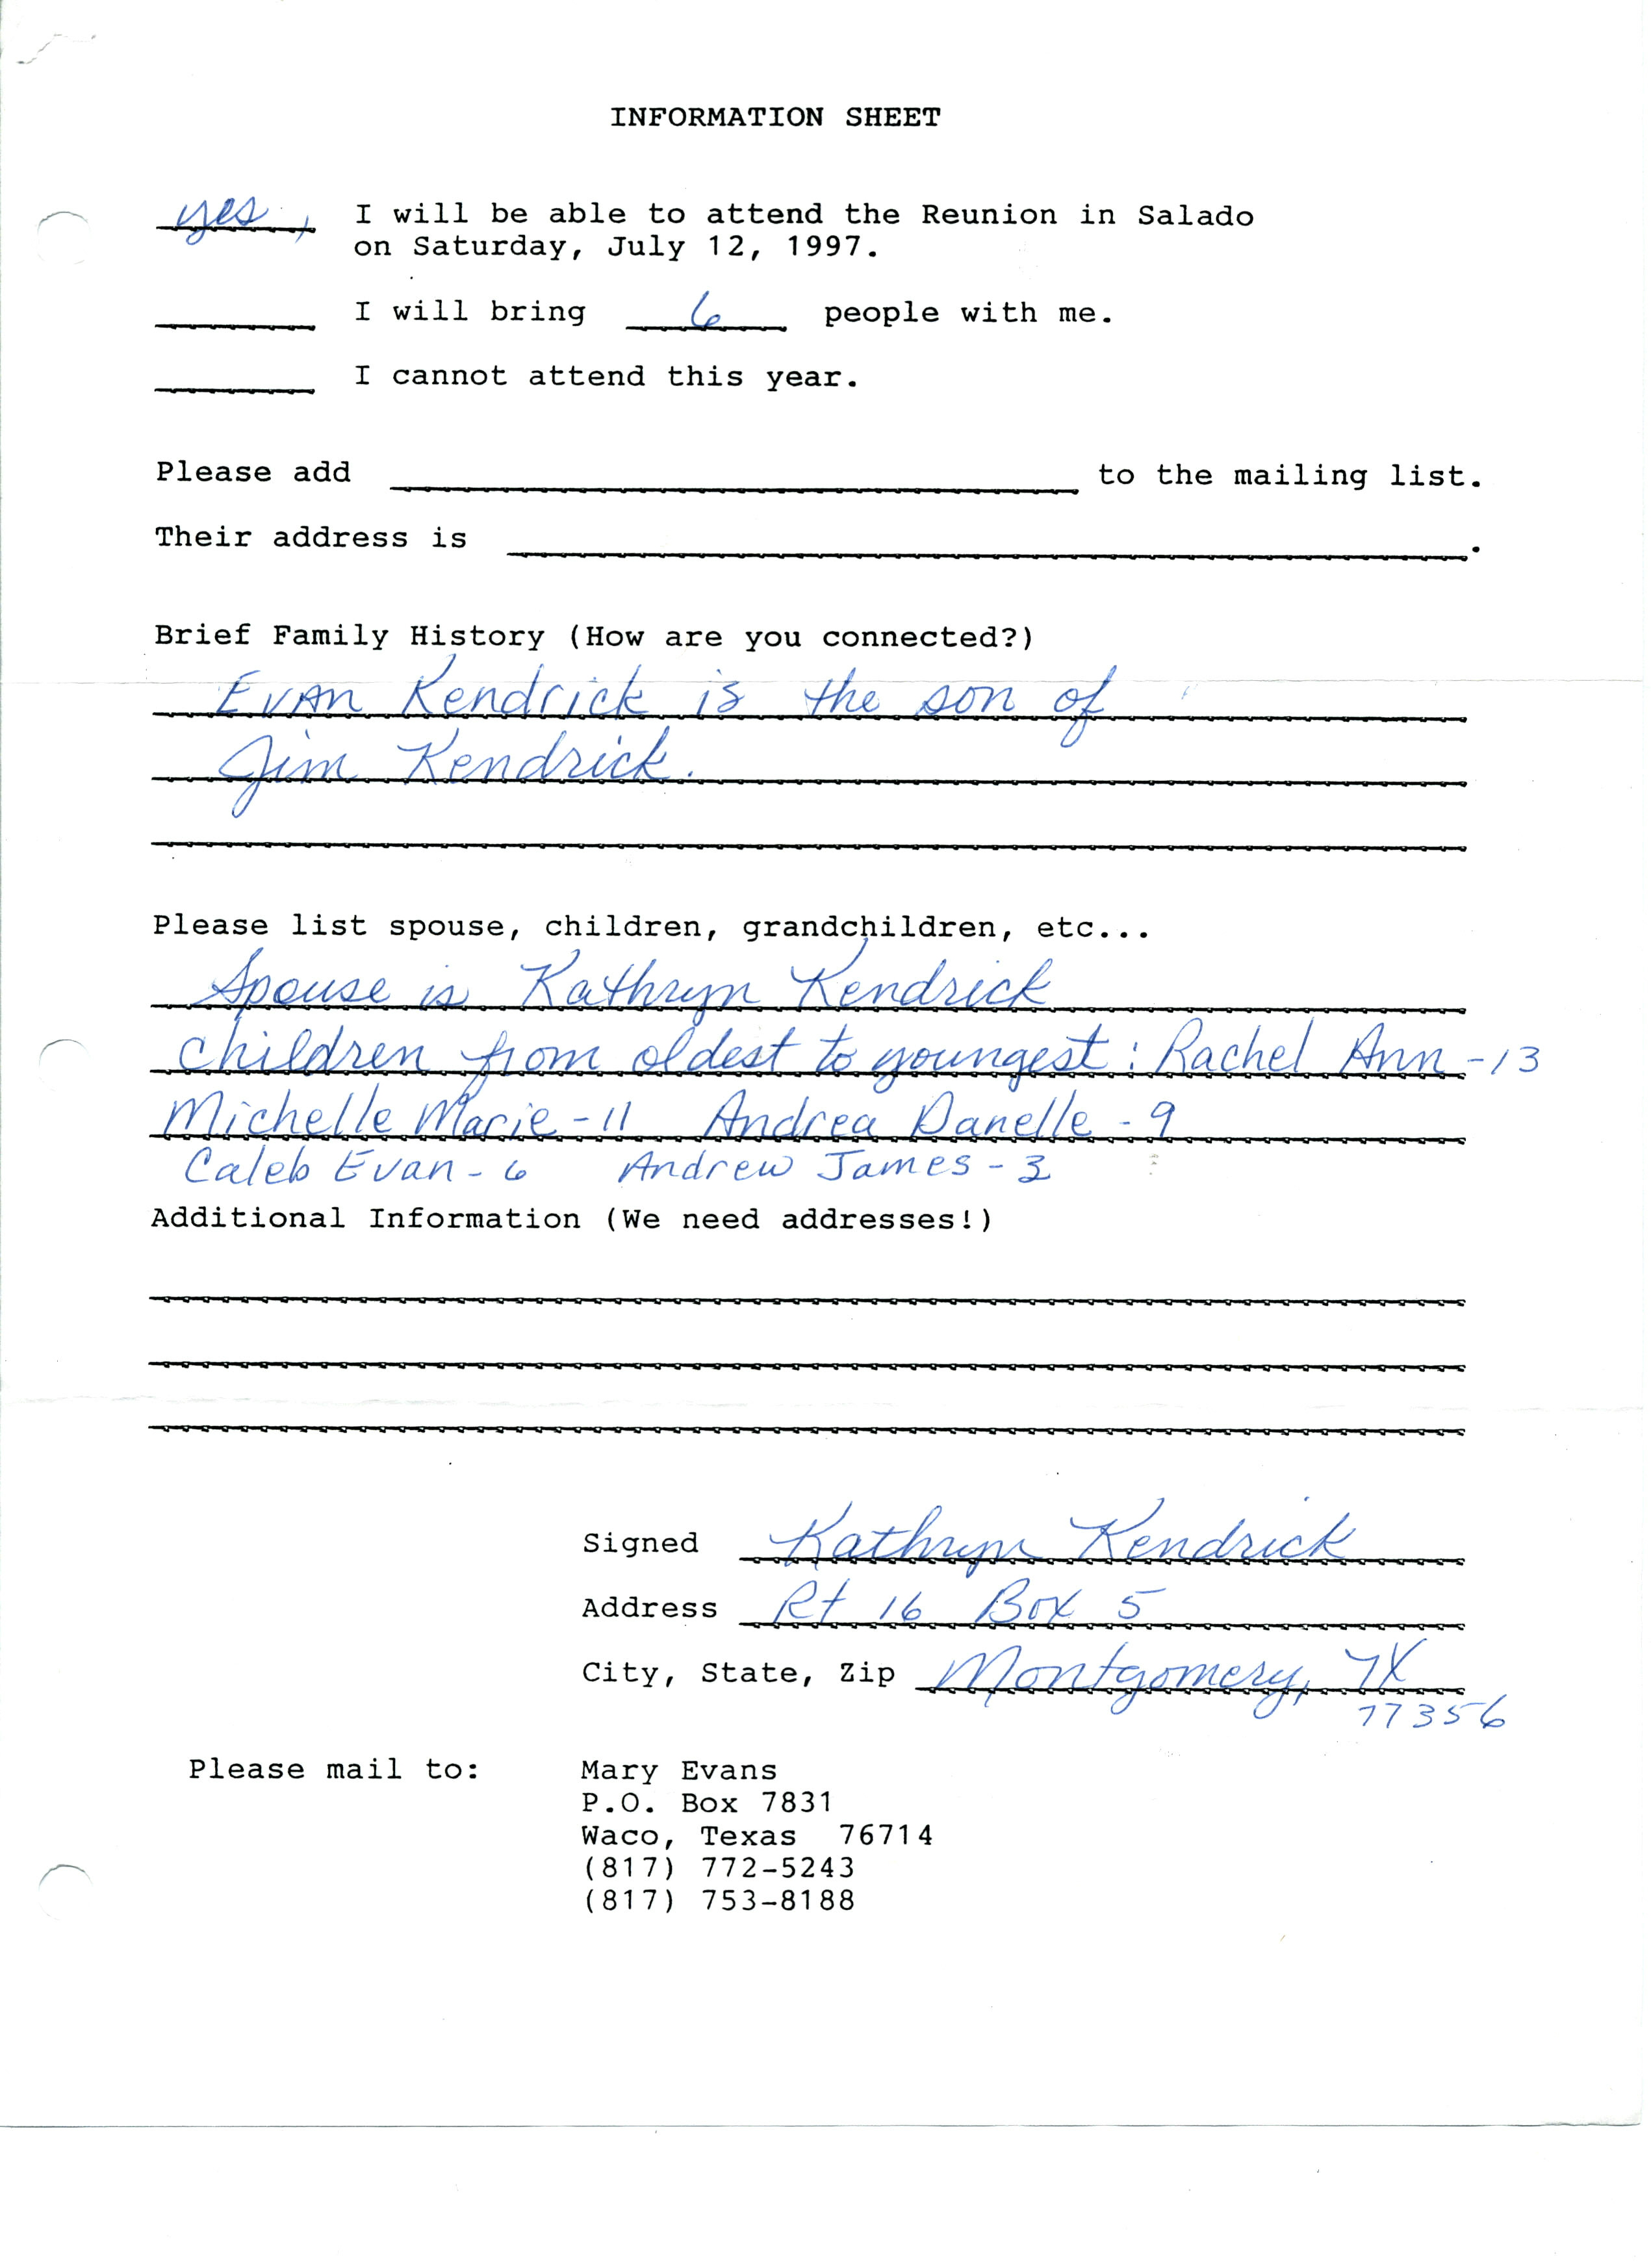 INFORMATION SHEET
yes, I will be able to attend the Reunion in Salado
on Saturday, July 12, 1997.
I will bring 6 people with me.
I cannot attend this year.
Please add to the mailing list.
Their address is .
Brief Family History (How are you connected?)
Evan Kendrick is the son of
Jim Kendrick.
Please list spouse, children, grandchildren, etc...
Spouse is Kathryn Kendrick
children from oldest to youngest: Rachel Ann -13
Michelle Marie - 11 Andrea Danelle - 9
Caleb Evan - 6 Andrew James - 3
Additional Information (We need addresses!)
Signed Kathryn Kendrick
Address Rt 16 Box 5
City, State, Zip Montgomery, TX
77356
Please mail to: Mary Evans
P.O. Box 7831
Waco, Texas 76714
(817) 772-5243
(817) 753-8188